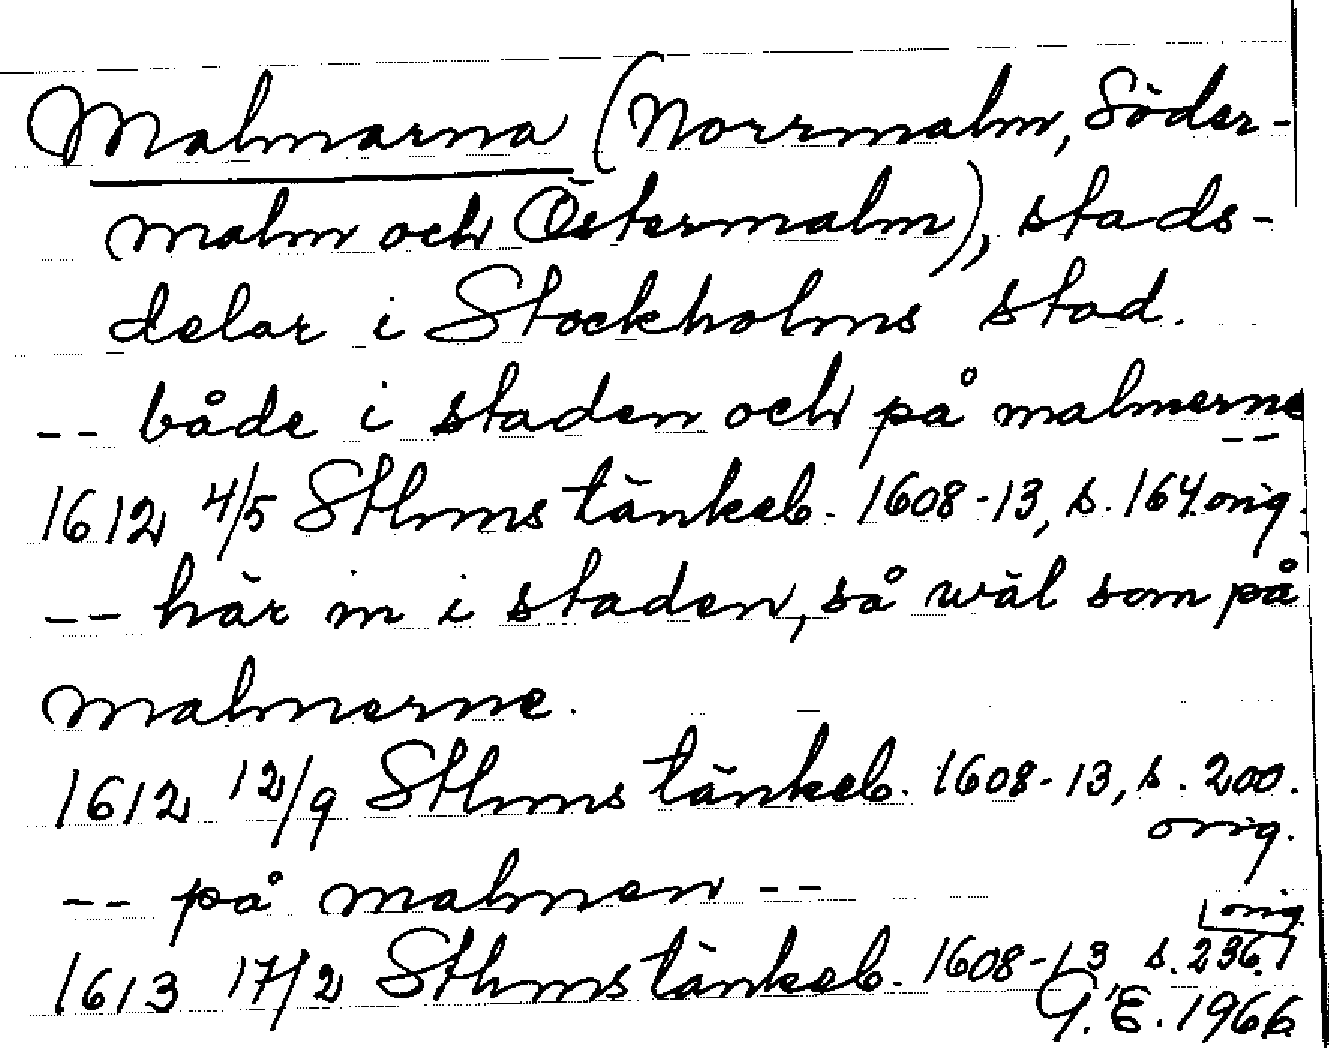 Malmarna (Norrmalm, Söder-
malm och Östermalm), stads-
delar i Stockholms stad.
-- både i staden och på malmerne
--
1612 4/5 Sthms tänkeb. 1608-13, s. 164 orig.
-- här in i staden, så wäl som på
malmerne.
1612 12/9 Sthms tänkeb. 1608-13, s. 200.
orig.
-- på malmen --
orig.
1613 17/2 Sthms tänkeb. 1608-13 s. 236.
G.E. 1966